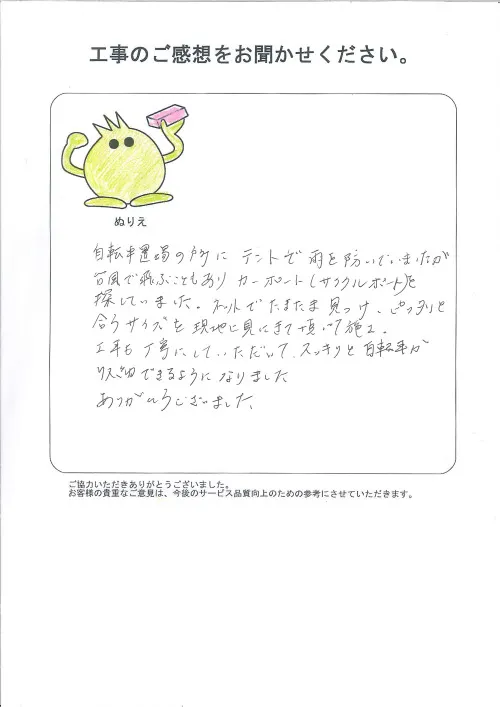 工事のご感想をお聞かせください。
ぬりえ
自転車置場の為に テントで雨を防いでいましたが
台風で飛ぶこともあり カーポート(サイクルポート)を
探していました。ネットでたまたま見つけ、ピッタリと
合うサイズを現地に見にきて頂いて施工。
工事も丁寧にしていただいて、スッキリと自転車が
収納できるようになりました
ありがとうございました。
ご協力いただきありがとうございました。
お客様の貴重なご意見は、今後のサービス品質向上のための参考にさせていただきます。